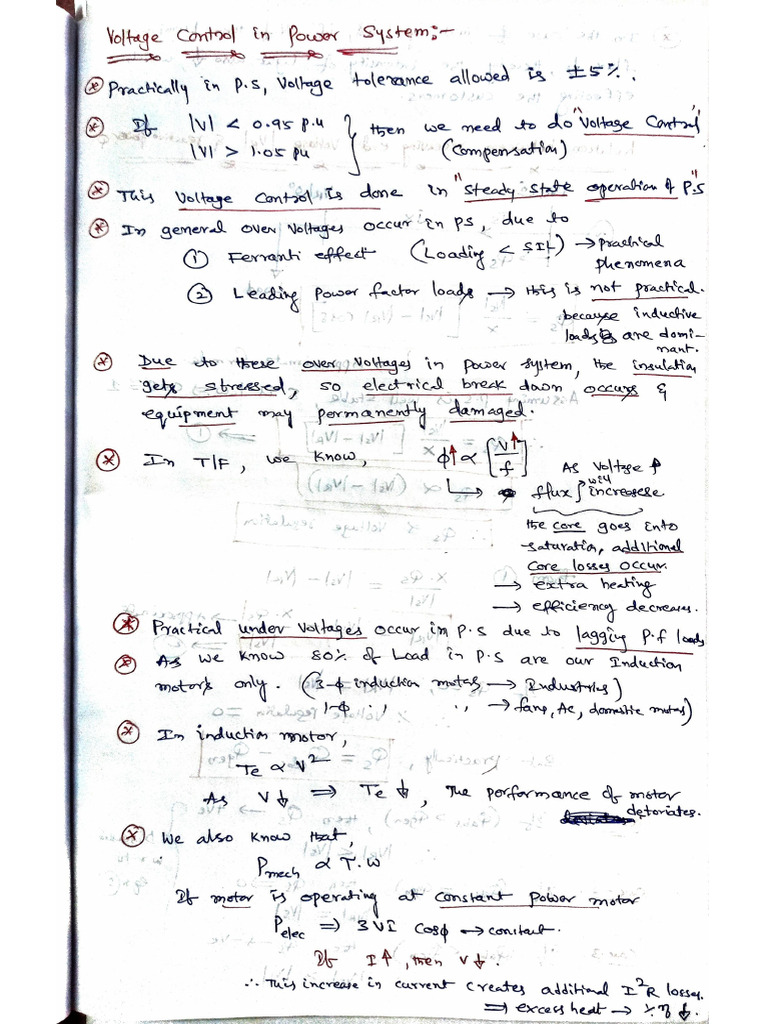 Voltage Control in Power System:-
* Practically in P.S, Voltage tolerance allowed is ±5%.
* If |V| < 0.95 p.u } then we need to do "Voltage Control"
|V| > 1.05 pu } (Compensation)
* This Voltage Control is done in "steady state operation of P.S"
* In general over voltages occur in PS, due to
① Ferranti effect (Loading < SIL) → practical
phenomena
② Leading Power factor loads → this is not practical.
because inductive
loads are domi-
nant.
* Due to these over voltages in power system, the insulation
gets stressed, so electrical break down occurs &
equipment may permanently damaged.
* In T/F, we know, φ↑ ∝ [V↑/f] As Voltage ↑
→ flux will increasese
the core goes into
saturation, additional
core losses occur.
→ extra heating
→ efficiency decreases.
* Practical under voltages occur in P.S due to lagging P.f loads
* As we know 80% of Load in P.S are our Induction
motors only. (3-φ induction motors → Industries)
1-φ ,, ,, → fans, Ac, domestic motors)
* In induction motor,
Te ∝ V²
As V↓ ⇒ Te↓, The performance of motor
detoriates.
* We also know that,
Pmech ∝ T.ω
If motor is operating at constant power motor
Pelec ⇒ 3VI Cosφ → constant.
If I↑, then V↓.
∴ This increase in current creates additional I²R losses.
⇒ excess heat → %η ↓.